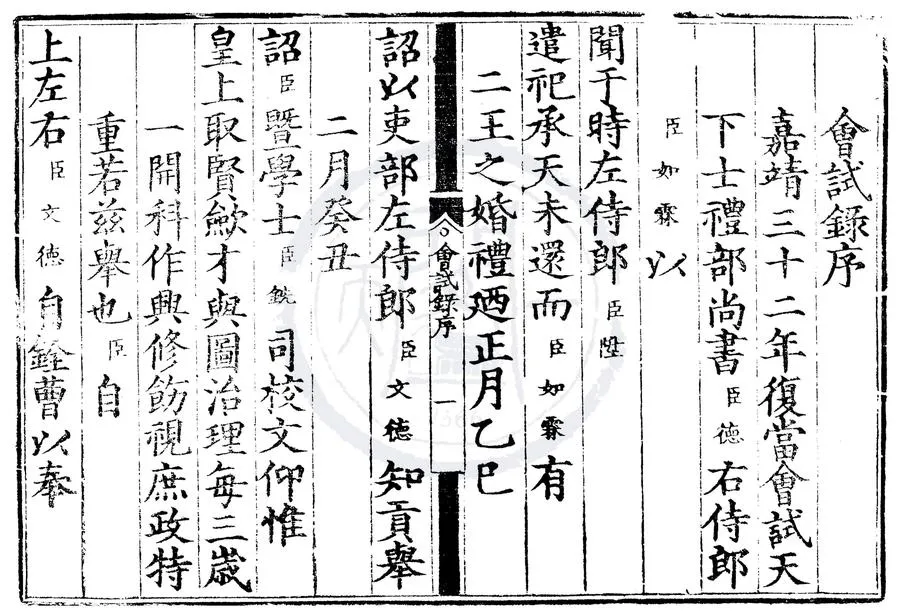 會試錄序
嘉靖三十二年復當會試天
下士禮部尚書臣德右侍郎
臣如霖以
聞于時左侍郎臣陞
遣祀承天未還而臣如霖有
二王之婚禮廼正月乙巳
會試錄序 一
詔以吏部左侍郎臣文德知貢舉
二月癸丑
詔臣暨學士臣銑司校文仰惟
皇上取賢歛才與圖治理每三歲
一開科作興修飭視庶政特
重若兹舉也臣自
上左右臣文德自銓曹以奉